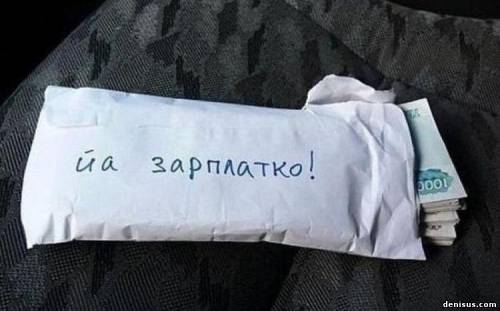 йа зарплатко!
1000
denisus.com